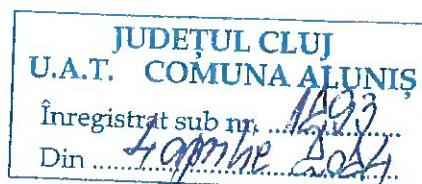 JUDEȚUL CLUJ
U.A.T. COMUNA ALUNIȘ
Înregistrat sub nr. 1293
Din 4 aprilie 2024